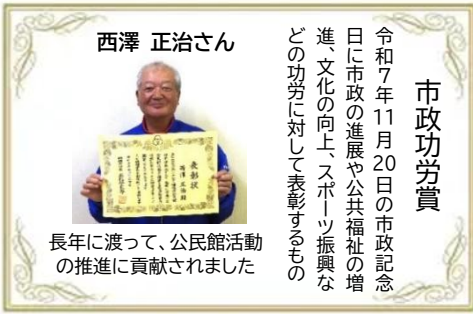 市政功労賞
令和7年11月20日の市政記念
日に市政の進展や公共福祉の増
進、文化の向上、スポーツ振興な
どの功労に対して表彰するもの
西澤 正治さん
表彰状
西澤 正治 様
長年に渡って、公民館活動
の推進に貢献されました